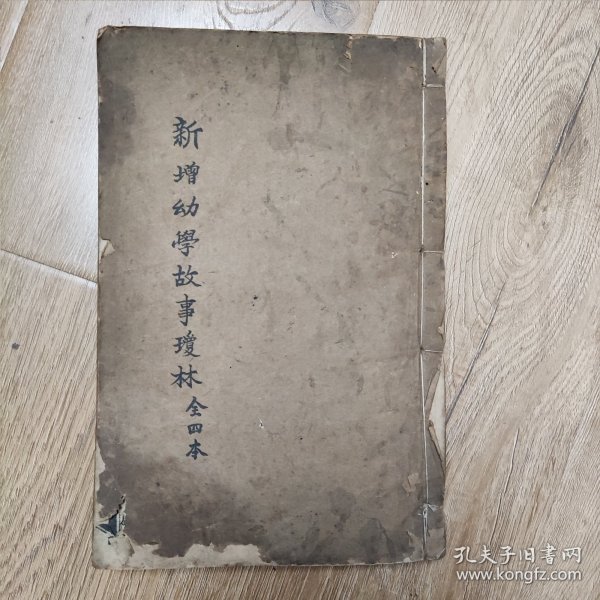 新增幼學故事瓊林全四本
孔夫子旧書网
www.kongfz.com